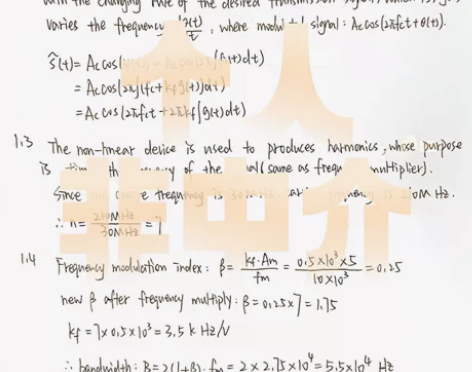 with the changing rate of the desired transmission signal, which is g(t)
varies the frequency , where modulated signal: Ac cos(2πfct+θ(t)).
ŝ(t)= Ac cos( = Ac cos(2π∫f(t)dt)
= Ac cos(2π∫(fc+kf g(t))dt)
= Ac cos(2πfct+2πkf∫g(t)dt)
1.3 The non-linear device is used to produces harmonics, whose purpose
is the of the (same as frequ multiplier).
Since frequency is 30 is 210MHz.
∴ n= 210MHz/30MHz = 7
1.4 Frequency modulation index: β= kf·Am/fm = 0.5×10³×5/10×10³ = 0.25
new β after frequency multiply: β=0.25×7=1.75
kf=7×0.5×10³=3.5k Hz/V
∴ bandwidth: B=2(1+β)·fm=2×2.75×10⁴=5.5×10⁴ Hz
个人
非中介